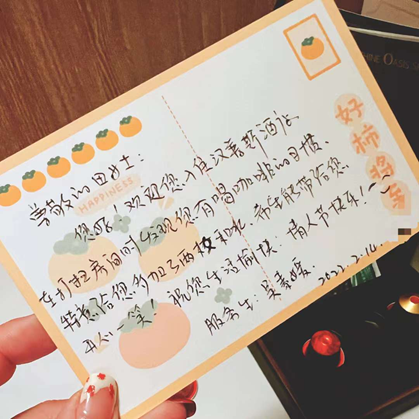 尊敬的田女士：
您好！欢迎您入住汉庭酒店
在打扫房间时发现您有喝咖啡的习惯、
特意给您多加了两枚和 希望能带给您
开心一笑！祝您生活愉快：情人节快乐！~~
服务生：吴
2022.2.14.
HAPPINESS
好柿